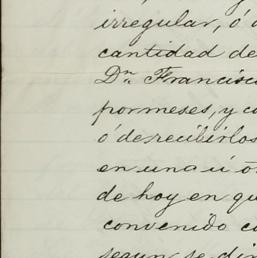 irregular, ó
cantidad de
Dn. Francisc
pormeses, y co
ó de recibirlos
en una ú o
de hoy en qu
convenido co
segun se di